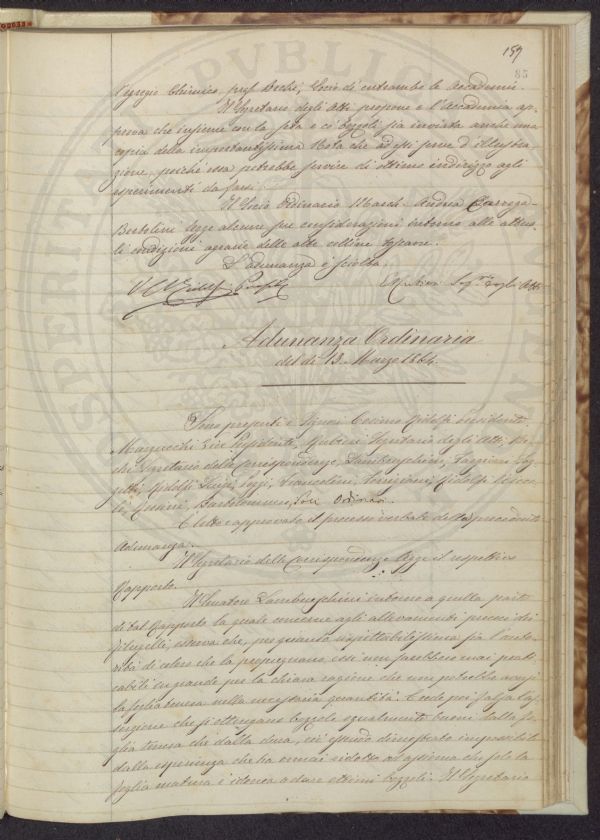 159
85
l'egregio Chimico, prof. Bechi, Socio di entrambe le Accademie.
Il Segretario degli Atti propone e l'Accademia ap-
prova che insieme con la seta e coi bozzoli sia inviata anche una
copia della importantissima Nota che ad essi pone d'illustra-
zione, perché essa potrebbe servire di ottimo indirizzo agli
esperimenti da farsi.
Il Socio Ordinario March. Andrea Carrega-
Bertolini legge alcune sue considerazioni intorno alle attua-
li condizioni agrarie delle alte colline toscane.
L'adunanza è sciolta.
Segr. degli Atti
Adunanza Ordinaria
del dì 13. Marzo 1864.
Sono presenti i Signori Cosimo Ridolfi Presidente,
Marzucchi Vice Presidente, Rubieri Segretario degli Atti,
Segretario della Corrispondenza, Lambruschini, Targioni
Ridolfi Luigi, Franceschi, Ridolfi
Cuppari, Bartolommei, Soci Ordinari.
È letto e approvato il processo verbale della precedente
Adunanza.
Il Segretario delle Corrispondenze legge il respettivo
Rapporto.
Il Senatore Lambruschini intorno a quella parte
di tal Rapporto la quale concerne agli allevamenti precoci dei
filugelli, osserva che, per quanto rispettabilissima sia l'auto-
rità di coloro che la propugnano essi non sarebbero mai prati-
cabili in grande per la chiara ragione che non potrebbe aversi
la foglia tenera nella necessaria quantità. Crede poi falsa l'as-
serzione che si ottengano bozzoli egualmente buoni dalla fo-
glia tenera che dalla dura, ciò essendo dimostrato impossibile
dalla esperienza che ha ormai ridotto ad assioma che solo la
foglia matura è idonea a dare ottimi bozzoli. Il Segretario